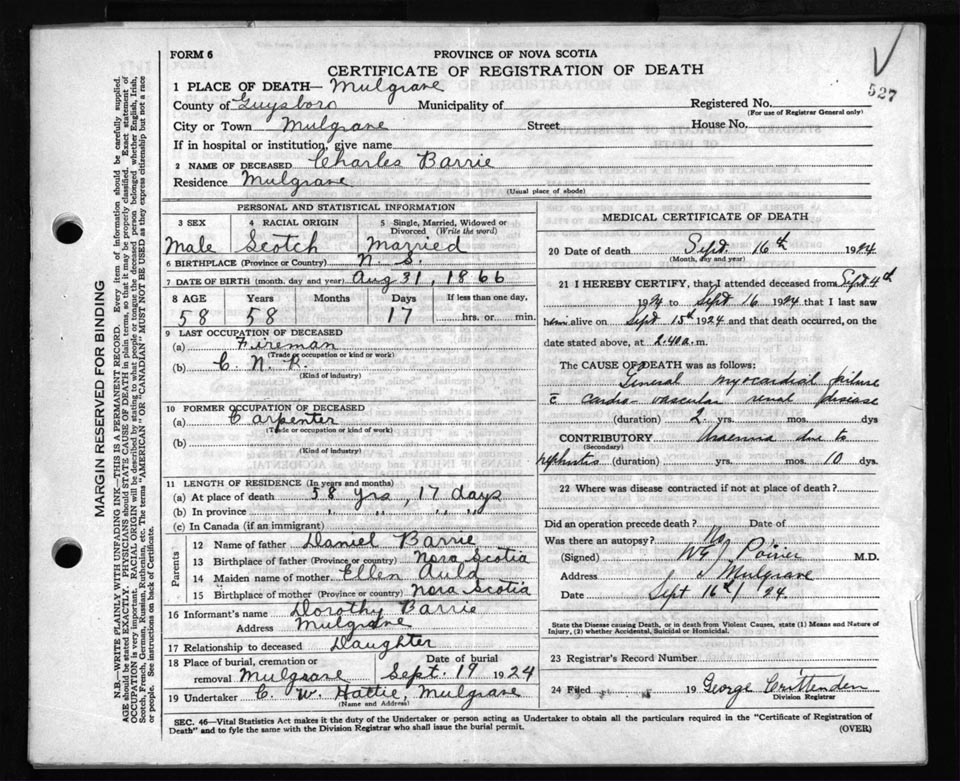 FORM 6
PROVINCE OF NOVA SCOTIA
CERTIFICATE OF REGISTRATION OF DEATH
527
1 PLACE OF DEATH— Mulgrave
County of Guysboro Municipality of Registered No.
(For use of Registrar General only)
City or Town Mulgrave Street House No.
If in hospital or institution, give name
2 NAME OF DECEASED Charles Barrie
Residence Mulgrave
(Usual place of abode)
PERSONAL AND STATISTICAL INFORMATION
3 SEX 4 RACIAL ORIGIN 5 Single, Married, Widowed or Divorced (Write the word)
Male Scotch Married
6 BIRTHPLACE (Province or Country) N. S.
7 DATE OF BIRTH (month, day and year) Aug 31, 1866
8 AGE Years Months Days If less than one day,
58 58 17 hrs. or min.
9 LAST OCCUPATION OF DECEASED
(a) Fireman
(Trade or occupation or kind of work)
(b) C. N. R.
(Kind of industry)
10 FORMER OCCUPATION OF DECEASED
(a) Carpenter
(Trade or occupation or kind of work)
(b)
(Kind of industry)
11 LENGTH OF RESIDENCE (In years and months)
(a) At place of death 58 yrs, 17 days
(b) In province " " " "
(c) In Canada (if an immigrant)
Parents
12 Name of father Daniel Barrie
13 Birthplace of father (Province or country) Nova Scotia
14 Maiden name of mother Ellen Auld
15 Birthplace of mother (Province or country) Nova Scotia
16 Informant's name Dorothy Barrie
Address Mulgrave
17 Relationship to deceased Daughter
18 Place of burial, cremation or removal Mulgrave Date of burial Sept. 19 1924
19 Undertaker C. W. Hattie, Mulgrave
(Name and Address)
MEDICAL CERTIFICATE OF DEATH
20 Date of death Sept. 16th 1924
(Month, day and year)
21 I HEREBY CERTIFY, that I attended deceased from Sept 4th
1924 to Sept 16 1924 that I last saw
him alive on Sept 15th 1924 and that death occurred, on
date stated above, at 2.40 a. m.
The CAUSE OF DEATH was as follows:
General myocardial failure
c cardio-vascular renal disease
(duration) 2 yrs. mos. dys
CONTRIBUTORY Uraemia due to
(Secondary)
nephritis (duration) yrs. mos. 10 dys.
22 Where was disease contracted if not at place of death?
Did an operation precede death? Date of
Was there an autopsy? No
(Signed) W G J Poirier M.D.
Address Mulgrave
Date Sept 16th / 24.
State the Disease causing Death, or in death from Violent Causes, state (1) Means and Nature of Injury, (2) whether Accidental, Suicidal or Homicidal.
23 Registrar's Record Number
24 Filed 19 George Crittenden
Division Registrar
SEC. 46—Vital Statistics Act makes it the duty of the Undertaker or person acting as Undertaker to obtain all the particulars required in the "Certificate of Registration of
Death" and to fyle the same with the Division Registrar who shall issue the burial permit. (OVER)
MARGIN RESERVED FOR BINDING
N.B.—WRITE PLAINLY WITH UNFADING INK—THIS IS A PERMANENT RECORD. Every item of information should be carefully supplied.
AGE should be stated EXACTLY. PHYSICIANS should STATE CAUSE OF DEATH in plain terms, so that it may be properly classified. Exact statement of
OCCUPATION is very important. RACIAL ORIGIN will be described by stating to what people or tongue the deceased person belonged whether English, Irish,
Scotch, French, German, Russian, Ruthenian, etc. The terms "AMERICAN" OR "CANADIAN" MUST NOT BE USED as they express citizenship but not a race
or people. See instructions on back of Certificate.